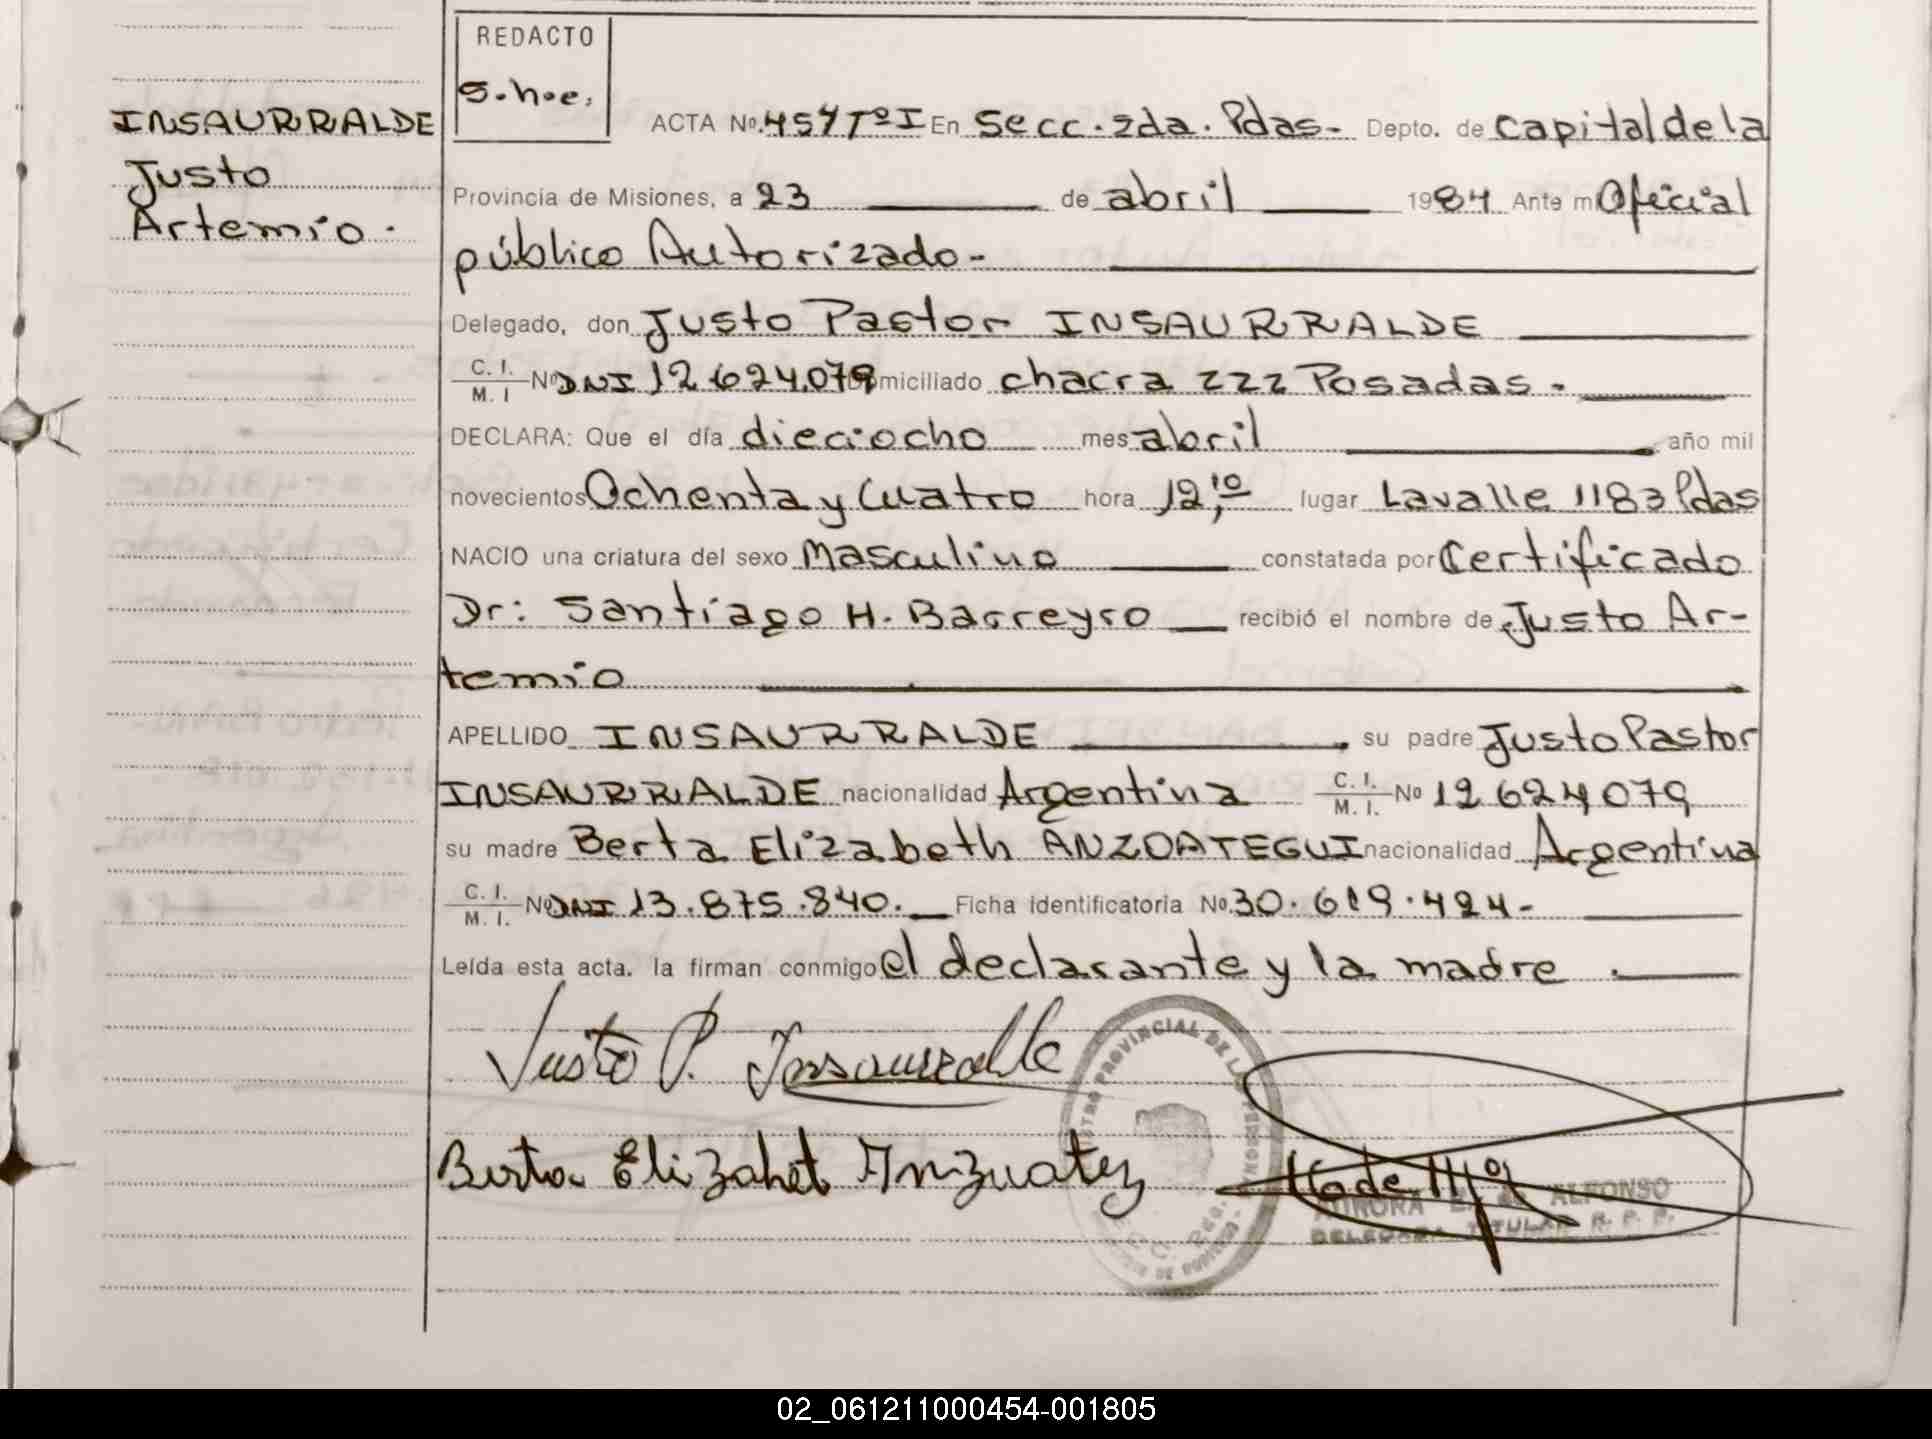 REDACTO
S.h.e.
INSAURRALDE
Justo
Artemio.
ACTA No. 457 TºI En Secc. 2da. Pdas- Depto. de Capital de la
Provincia de Misiones, a 23 de abril 1984 Ante mi Oficial
público Autorizado-
Delegado, don Justo Pastor INSAURRALDE
C. I. / M. I Nº DNI 12624.079 Domiciliado chacra 222 Posadas.
DECLARA: Que el día dieciocho mes abril año mil
novecientos Ochenta y Cuatro hora 12,10 lugar Lavalle 1183 Pdas
NACIO una criatura del sexo Masculino constatada por Certificado
Dr: Santiago H. Barreyro recibió el nombre de Justo Ar-
temio
APELLIDO INSAURRALDE su padre Justo Pastor
INSAURRALDE nacionalidad Argentina C. I. / M. I. No 12624079
su madre Berta Elizabeth ANZOATEGUI nacionalidad Argentina
C. I. / M. I. No DNI 13.875.840. Ficha identificatoria No. 30.619.424-
Leída esta acta. la firman conmigo el declarante y la madre.
Justo P. Insaurralde
Berta Elizabet Anzuateg
ALFONSO
DELEGADA TITULAR R. P. P.
02_061211000454-001805